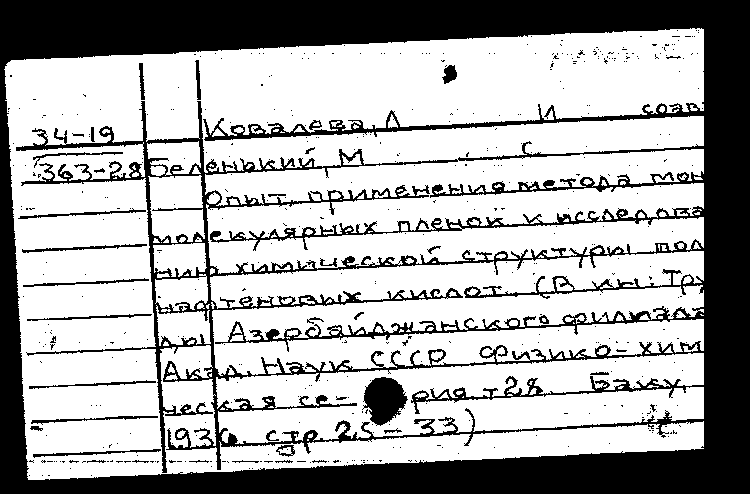 34-19 Ковалева, Л И соав
363-28 Беленький, М. С
Опыт, применения метода мон
молекулярных пленок к исследова
нию химической структуры пол
нафтеновых кислот. (В кн: Тру
ды Азербайджанского филиала
Акад. Наук СССР Физико-хим
ческая се- рия т28. Баку,
1936. стр. 25-33)